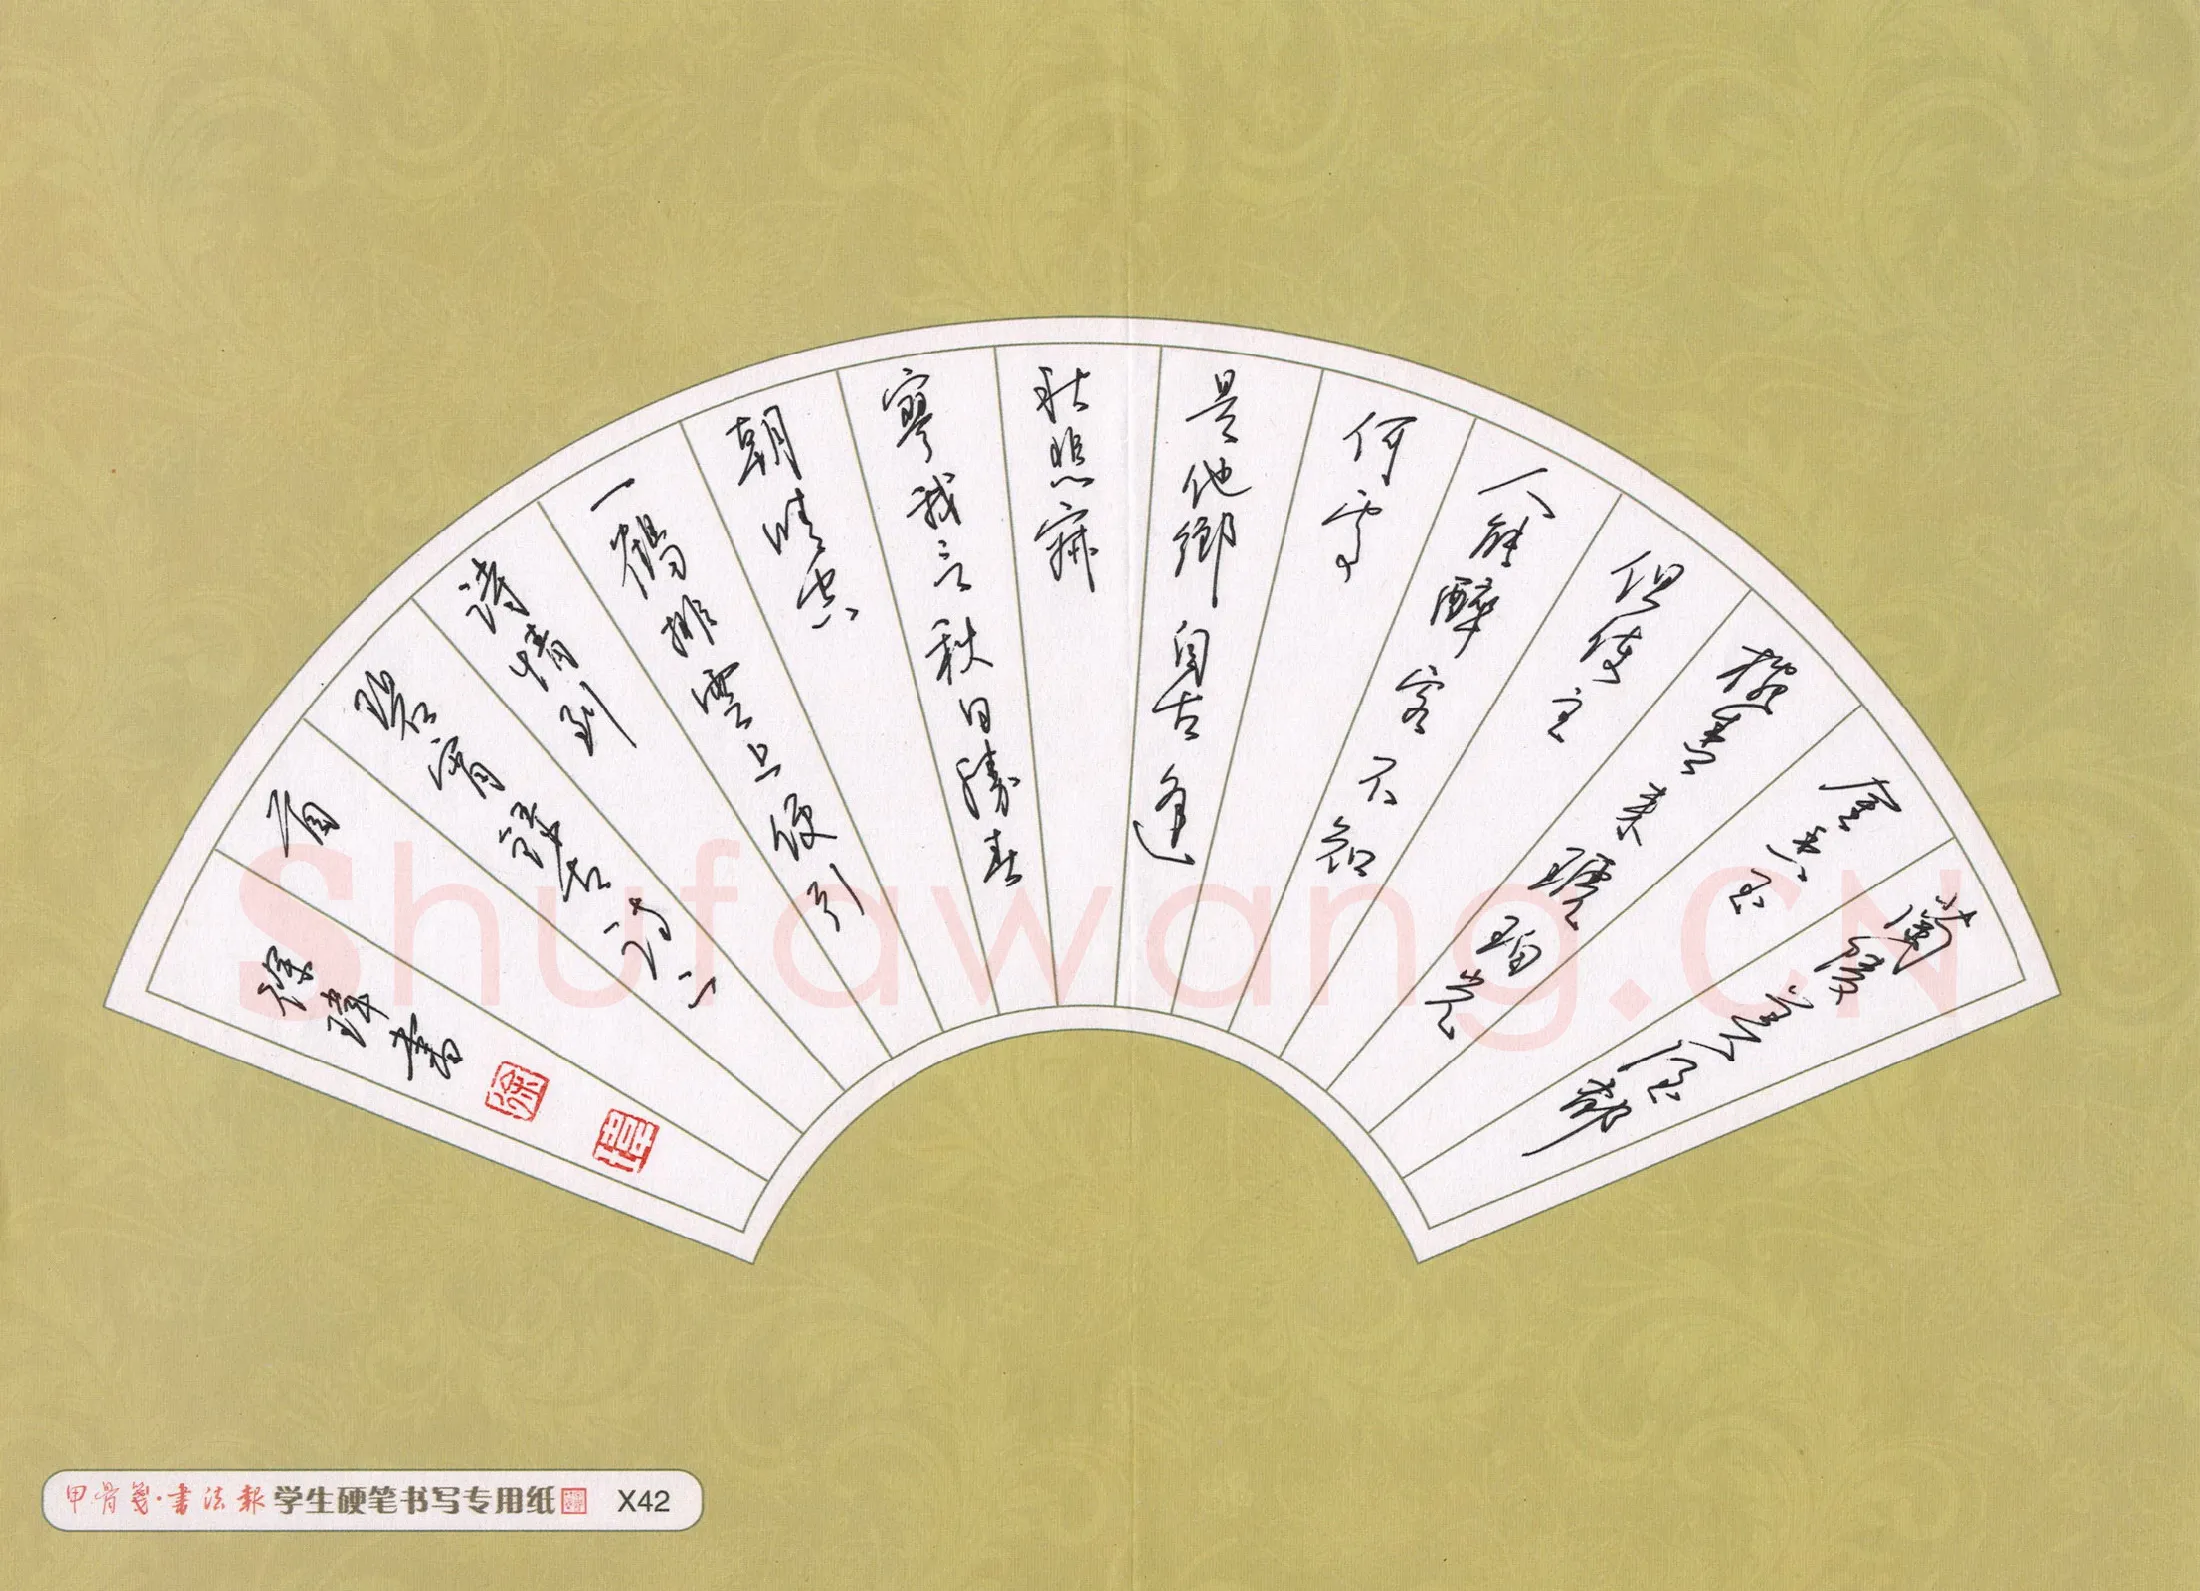 蘭陵美酒郁
金香玉
椀盛来琥珀光
但使主
人能醉客不知
何處
是他鄉自古逢
秋悲寂
寥我言秋日勝春
朝晴空
一鶴排雲上便引
詩情到
碧霄錄古詩二
首
徐瑋書
徐
Shufawang.CN
甲骨箋·書法報 学生硬笔书写专用纸 X42